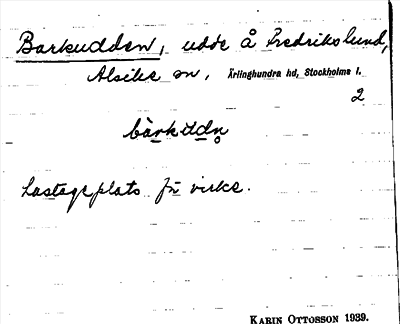 Barkudden, udde å Fredrikslund,
Alsike sn, Ärlinghundra hd, Stockholms l.
2
bàrkúdn̥
Lastageplats för virke.
KARIN OTTOSSON 1939.